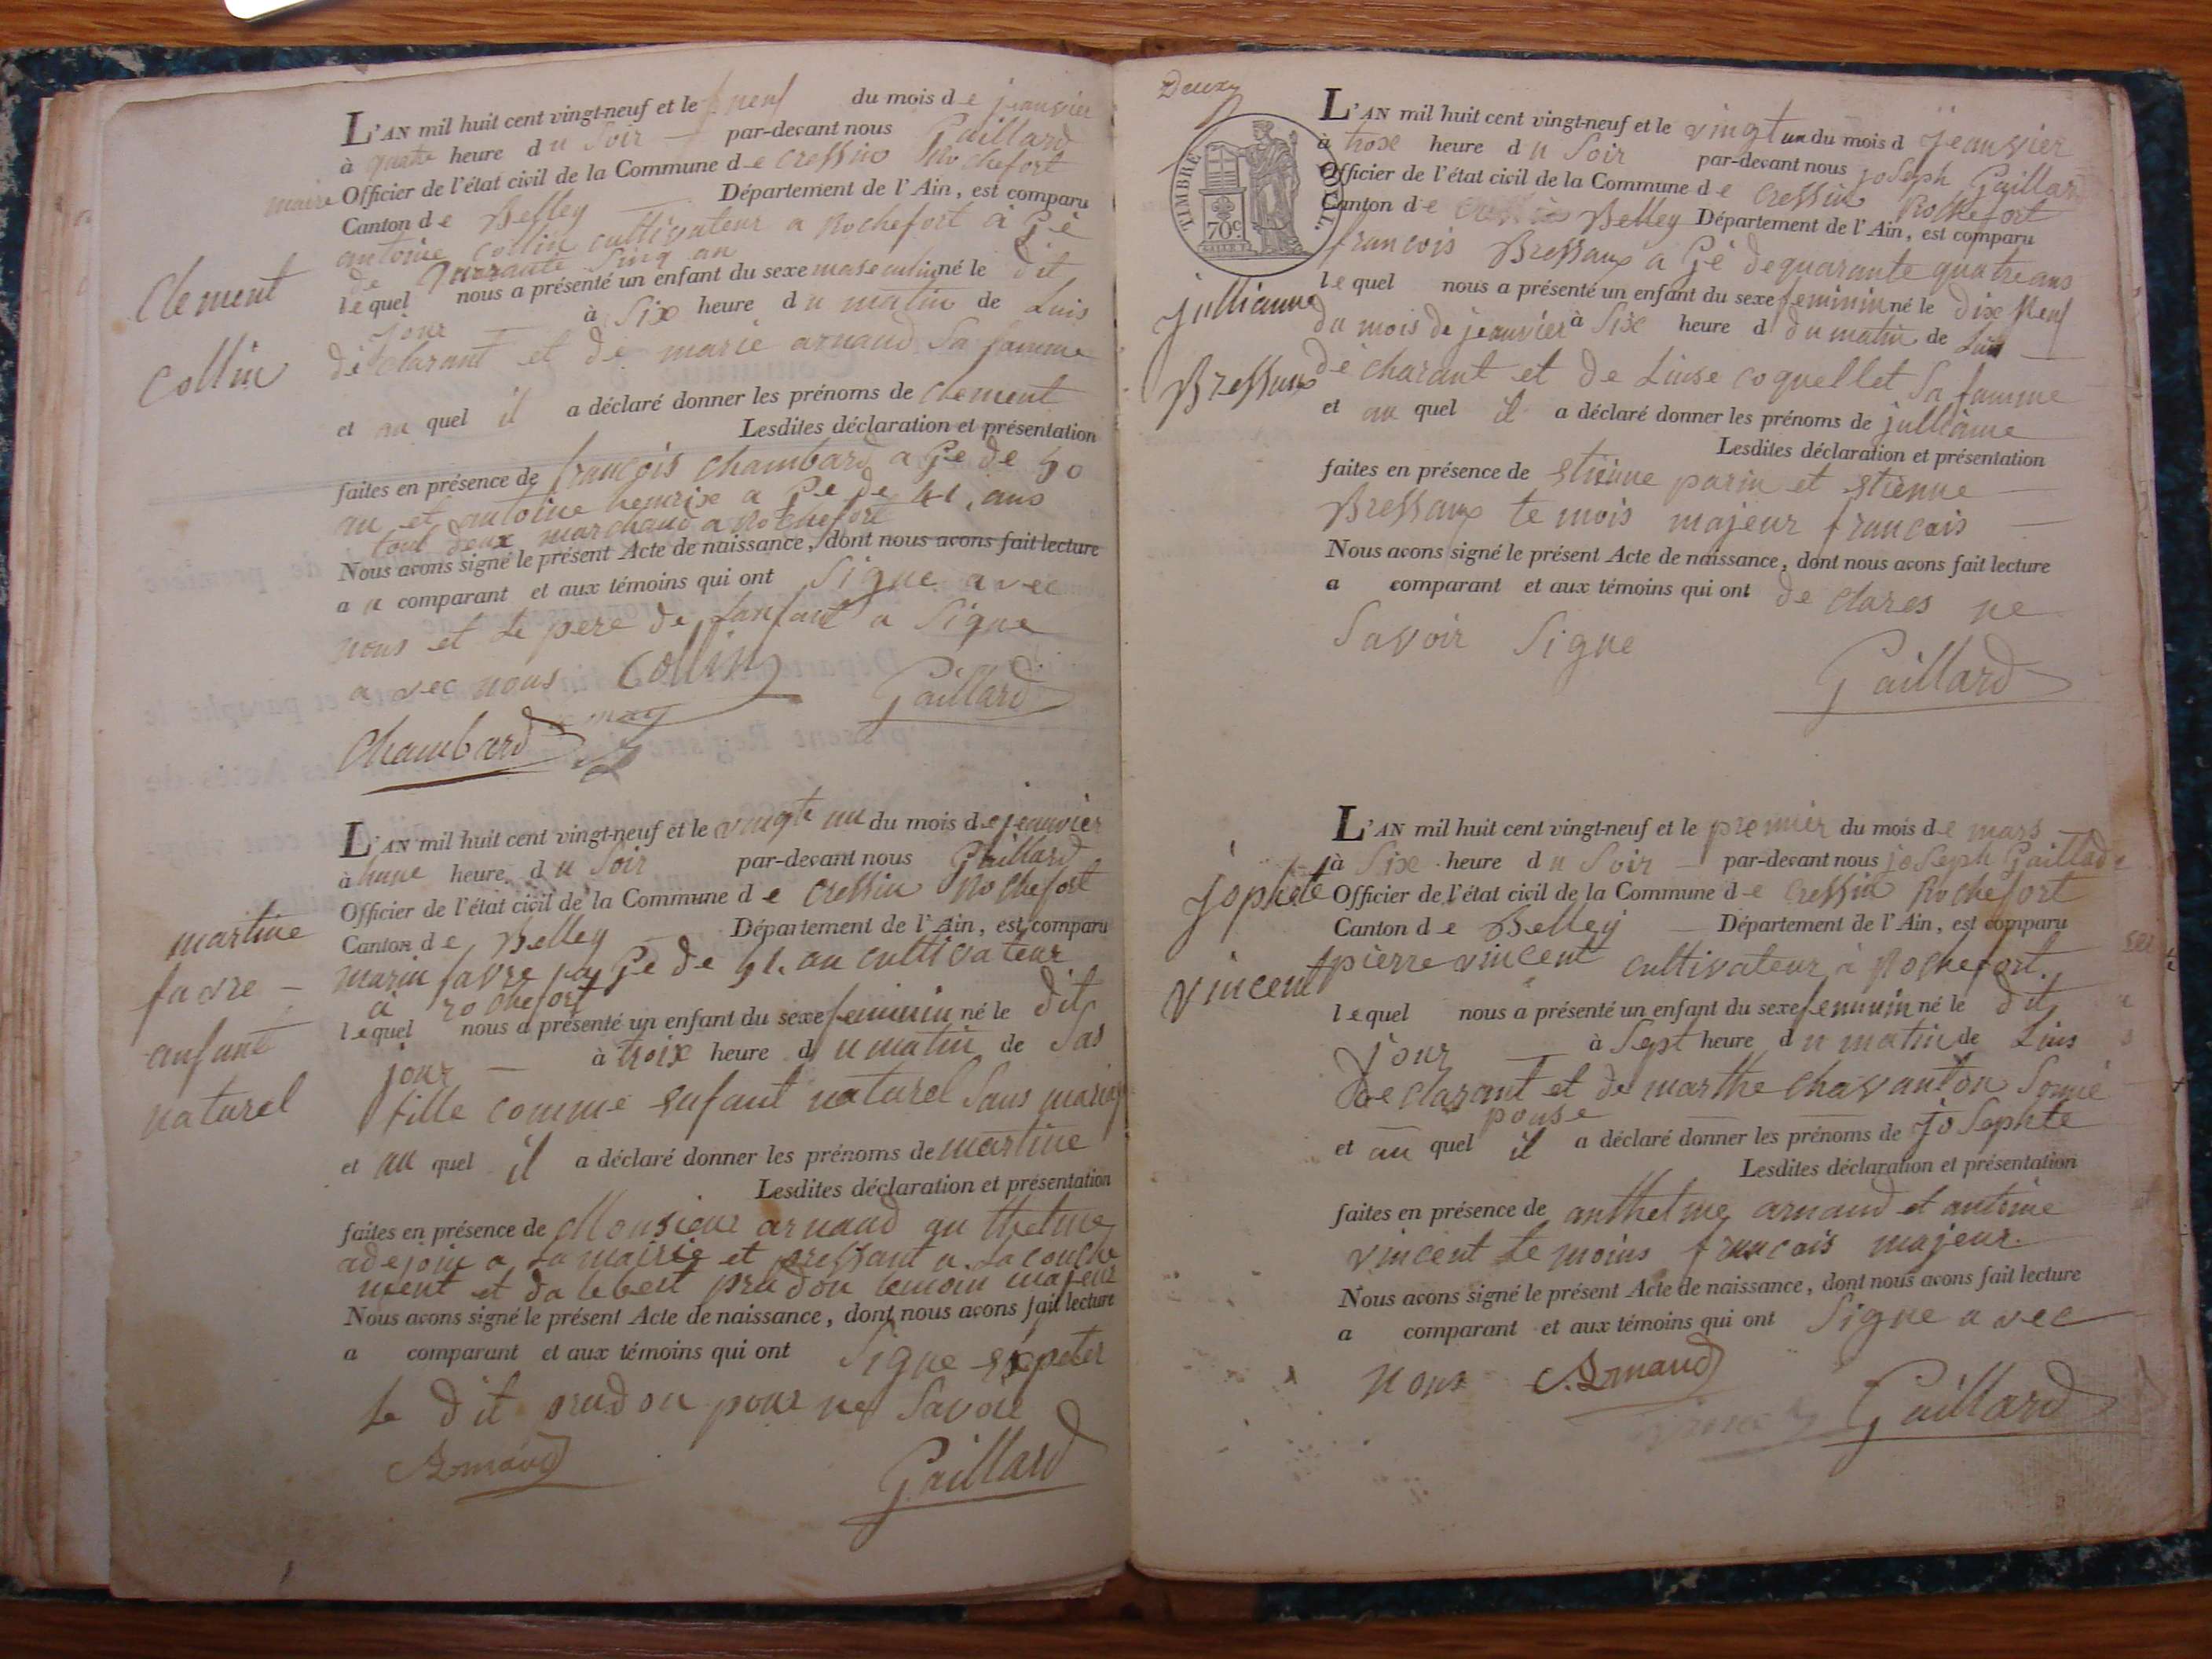 L'AN mil huit cent vingt-neuf et le neuf du mois de jeanvier
à quatre heure du Soir par-devant nous Gaillard
maire Officier de l'état civil de la Commune de cressin Rochefort
Canton de Belley Département de l'Ain, est comparu
antoine collin cultivateur a Rochefort a Gé
de quarante Sinq an
lequel nous a présenté un enfant du sexe masculin né le dit
jour à Six heure du matin de Luis
déclarant et de marie arnaud Sa famme
et au quel il a déclaré donner les prénoms de Clement
Lesdites déclaration et présentation
faites en présence de francois chambard a Ge de 50
an et antoine hemrix a Ge de 41 ans
tout deux marchand a Rochefort
Nous avons signé le présent Acte de naissance, dont nous avons fait lecture
au comparant et aux témoins qui ont Signe avec
nous et Le pere de Lanfant a Signe
avec nous Collin Gaillard
Chambard
Clement
Collin
L'AN mil huit cent vingt-neuf et le vingt un du mois de jeanvier
à hune heure du Soir par-devant nous Gaillard
Officier de l'état civil de la Commune de cressin Rochefort
Canton de Belley Département de l'Ain, est comparu
marin favre a Ge de 51 an cultivateur
à rochefort
lequel nous a présenté un enfant du sexe feminin né le dit
jour à troix heure du matin de Sas
fille comme enfant naturel Sans mariage
et au quel il a déclaré donner les prénoms de martine
Lesdites déclaration et présentation
faites en présence de Monsieur arnaud anthelme
adejoin a La mairie et pressant a Lacouche
ment et dalebert prudon temoin majeur
Nous avons signé le présent Acte de naissance, dont nous avons fait lecture
a comparant et aux témoins qui ont Signe exepeter
Le dit prudon pour ne Savoir
Armaud Gaillard
martine
favre
anfant
naturel
Deux
TIMBRE ROYAL
70c
L'AN mil huit cent vingt-neuf et le vingt un du mois d jeanvier
à trose heure du Soir par-devant nous joseph Gaillard
Officier de l'état civil de la Commune de cressin Rochefort
Canton de Belley Département de l'Ain, est comparu
francois Bressaux a Gé de quarante quatre ans
lequel nous a présenté un enfant du sexe feminin né le dix Neuf
du mois de jeanvier à Six heure d du matin de Lui
décharant et de Luise coquellet Sa famme
et au quel il a déclaré donner les prénoms de jullianne
Lesdites déclaration et présentation
faites en présence de etienne parin et etienne
Bressaux temois majeur francais
Nous avons signé le présent Acte de naissance, dont nous avons fait lecture
a comparant et aux témoins qui ont de clares ne
Savoir Signe
Gaillard
jullianne
Bressaux
L'AN mil huit cent vingt-neuf et le premier du mois de mars
à Six heure du Soir par-devant nous joseph Gaillard
Officier de l'état civil de la Commune de Cressin Rochefort
Canton de Belley Département de l'Ain, est comparu
pierre vincent cultivateur à Rochefort
lequel nous a présenté un enfant du sexe feminin né le dit
jour à Sept heure du matin de Luis
declarant et de marthe chavanton Son é
pouse
et au quel il a déclaré donner les prénoms de joSephte
Lesdites déclaration et présentation
faites en présence de anthelme arnaud et antoine
vincent temoins francais majeur
Nous avons signé le présent Acte de naissance, dont nous avons fait lecture
a comparant et aux témoins qui ont Signe avec
nous Armaud
Gaillard
josphete
vincent